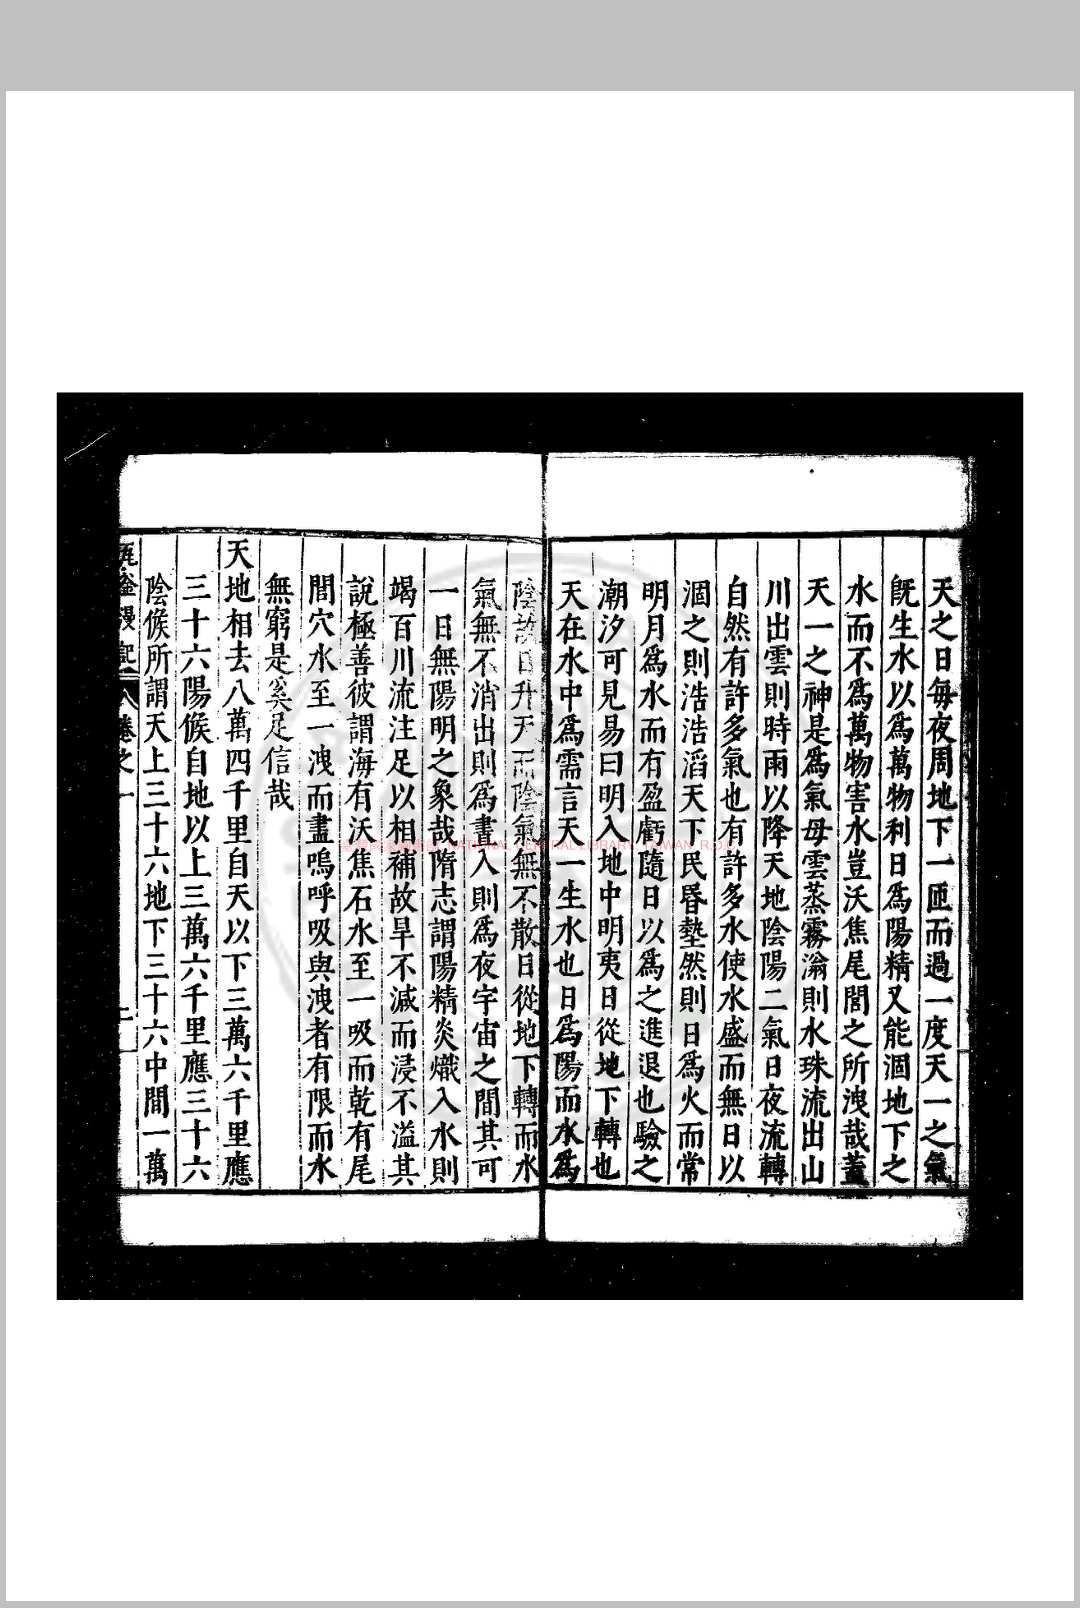 天之日每夜周地下一匝而過一度天一之氣
旣生水以爲萬物利日爲陽精又能涸地下之
水而不爲萬物害水豈沃焦尾閭之所洩哉蓋
天一之神是爲氣母雲蒸霧滃則水珠流出山
川出雲則時雨以降天地陰陽二氣日夜流轉
自然有許多氣也有許多水使水盛而無日以
涸之則浩浩滔天下民昏墊然則日爲火而常
明月爲水而有盈虧隨日以爲之進退也驗之
潮汐可見易曰明入地中明夷日從地下轉也
天在水中爲需言天一生水也日爲陽而水爲
陰故日升天而陰氣無不散日從地下轉而水
氣無不消出則爲晝入則爲夜宇宙之間其可
一日無陽明之象哉隋志謂陽精炎熾入水則
竭百川流注足以相補故旱不減而浸不溢其
說極善彼謂海有沃焦石水至一吸而乾有尾
閭穴水至一洩而盡嗚呼吸與洩者有限而水
無窮是奚足信哉
天地相去八萬四千里自天以下三萬六千里應
三十六陽候自地以上三萬六千里應三十六
陰候所謂天上三十六地下三十六中間一萬
卷之一